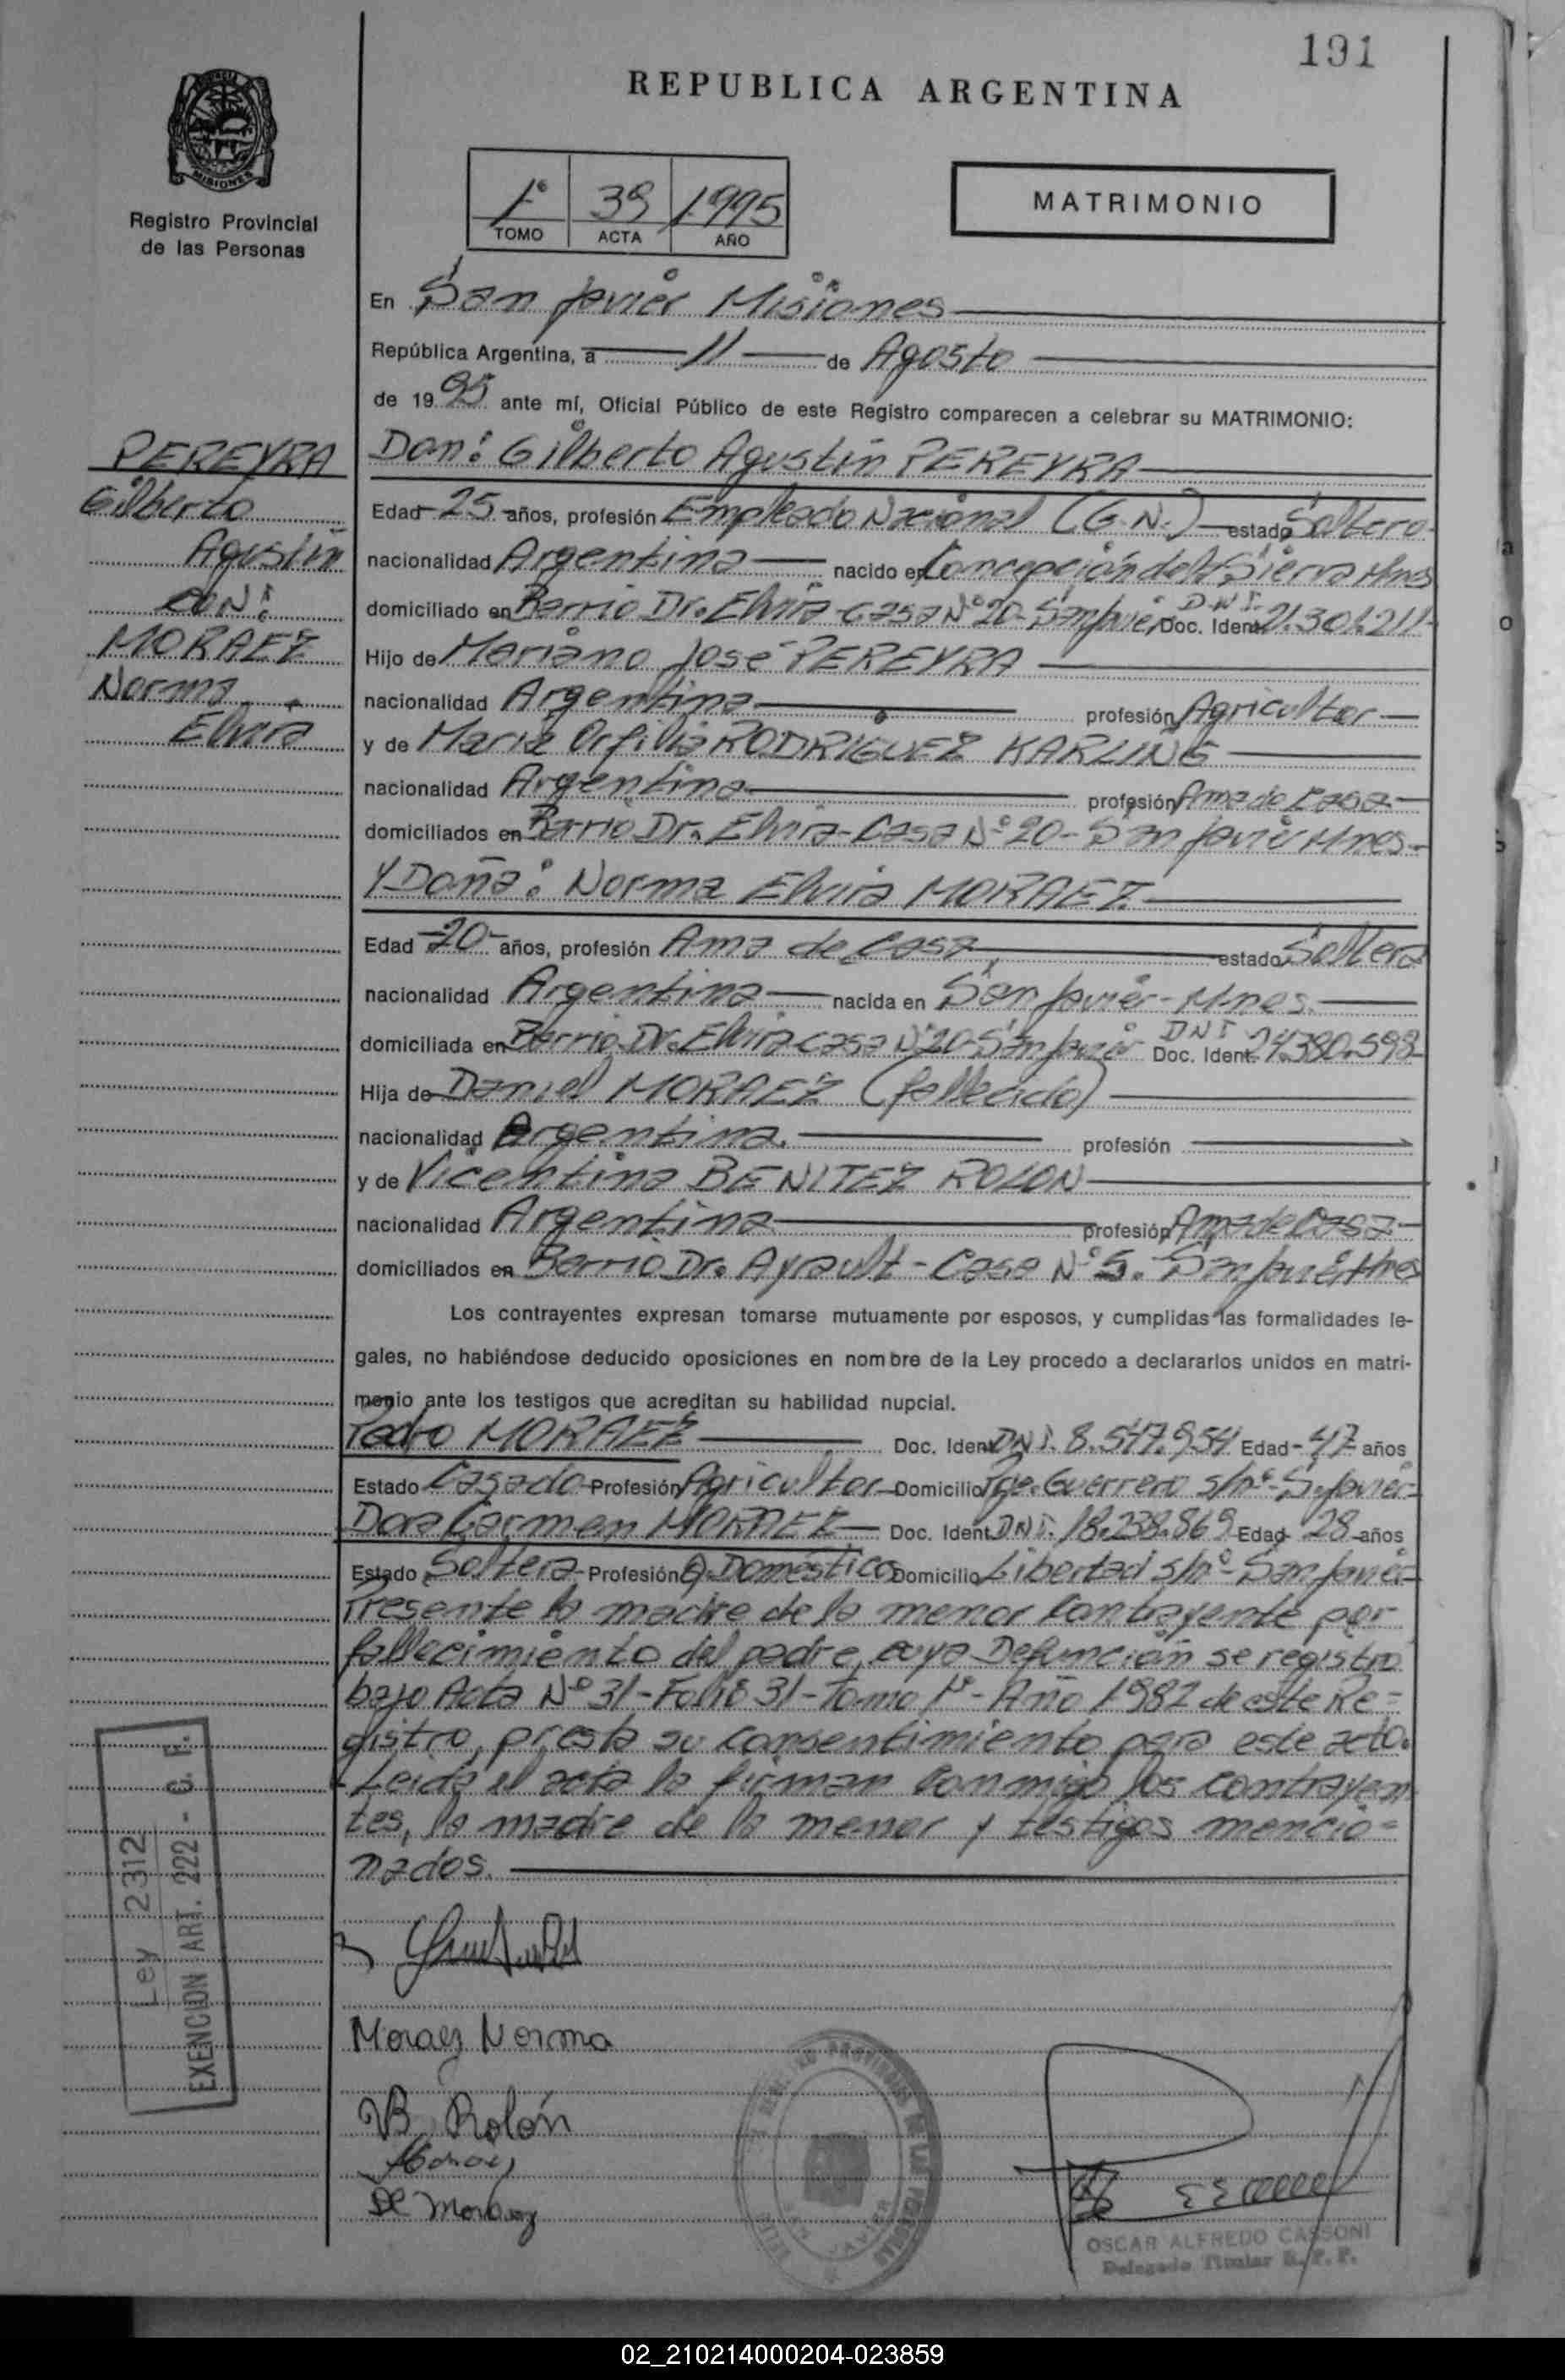 191
REPUBLICA ARGENTINA
MISIONES
Registro Provincial
de las Personas
1º 39 1995
TOMO ACTA AÑO
MATRIMONIO
En San Javier Misiones
República Argentina, a 11 de Agosto
de 1995 ante mí, Oficial Público de este Registro comparecen a celebrar su MATRIMONIO:
PEREYRA
Gilberto
Agustín
CON:
MORAEZ
Norma
Elvira
Don: Gilberto Agustín PEREYRA
Edad 25 años, profesión Empleado Nacional (G.N.) estado Soltero
nacionalidad Argentina nacido en Concepción de la Sierra Mnes
domiciliado en Barrio Dr. Elvira casa Nº 20 San Javier Doc. Ident. D.N.I. 21.301.211
Hijo de Mariano José PEREYRA
nacionalidad Argentina profesión Agricultor
y de María Orfilia RODRIGUEZ KARLING
nacionalidad Argentina profesión Ama de Casa
domiciliados en Barrio Dr. Elvira - Casa Nº 20 - San Javier Mnes.
Y Doña: Norma Elvira MORAEZ
Edad 20 años, profesión Ama de Casa estado Soltera
nacionalidad Argentina nacida en San Javier - Mnes.
domiciliada en Barrio Dr. Elvira casa Nº 20 San Javier Doc. Ident. DNI 24.380.598
Hija de Daniel MORAEZ (fallecido)
nacionalidad Argentina. profesión
y de Vicentina BENITEZ ROLON
nacionalidad Argentina profesión Ama de Casa
domiciliados en Barrio Dr. Ayrault - Casa Nº 5. San Javier Mnes
Los contrayentes expresan tomarse mutuamente por esposos, y cumplidas las formalidades le-
gales, no habiéndose deducido oposiciones en nombre de la Ley procedo a declararlos unidos en matri-
monio ante los testigos que acreditan su habilidad nupcial.
Pedro MORAEZ Doc. Ident. DNI. 8.547.954 Edad 47 años
Estado Casado Profesión Agricultor Domicilio Pje. Guerrero s/nº S. Javier
Dora Carmen MORAEZ Doc. Ident. DNI. 18.238.869 Edad 28 años
Estado Soltera Profesión Q. Domésticos Domicilio Libertad s/nº San Javier
Presente la madre de la menor contrayente por
fallecimiento del padre, cuya Defunción se registro
bajo Acta Nº 31 - Folio 31 - Tomo 1º - Año 1982 de este Re=
gistro, presta su consentimiento para este acto.
Leída el acta la firman conmigo los contrayen
tes, la madre de la menor y testigos mencio=
nados.
Ley 2312
EXENCION ART. 222 - C. F.
Moraez Norma
VB Rolón
Moraez
DC Moraez
OSCAR ALFREDO CASSONI
Delegado Titular R. P. P.
02_210214000204-023859